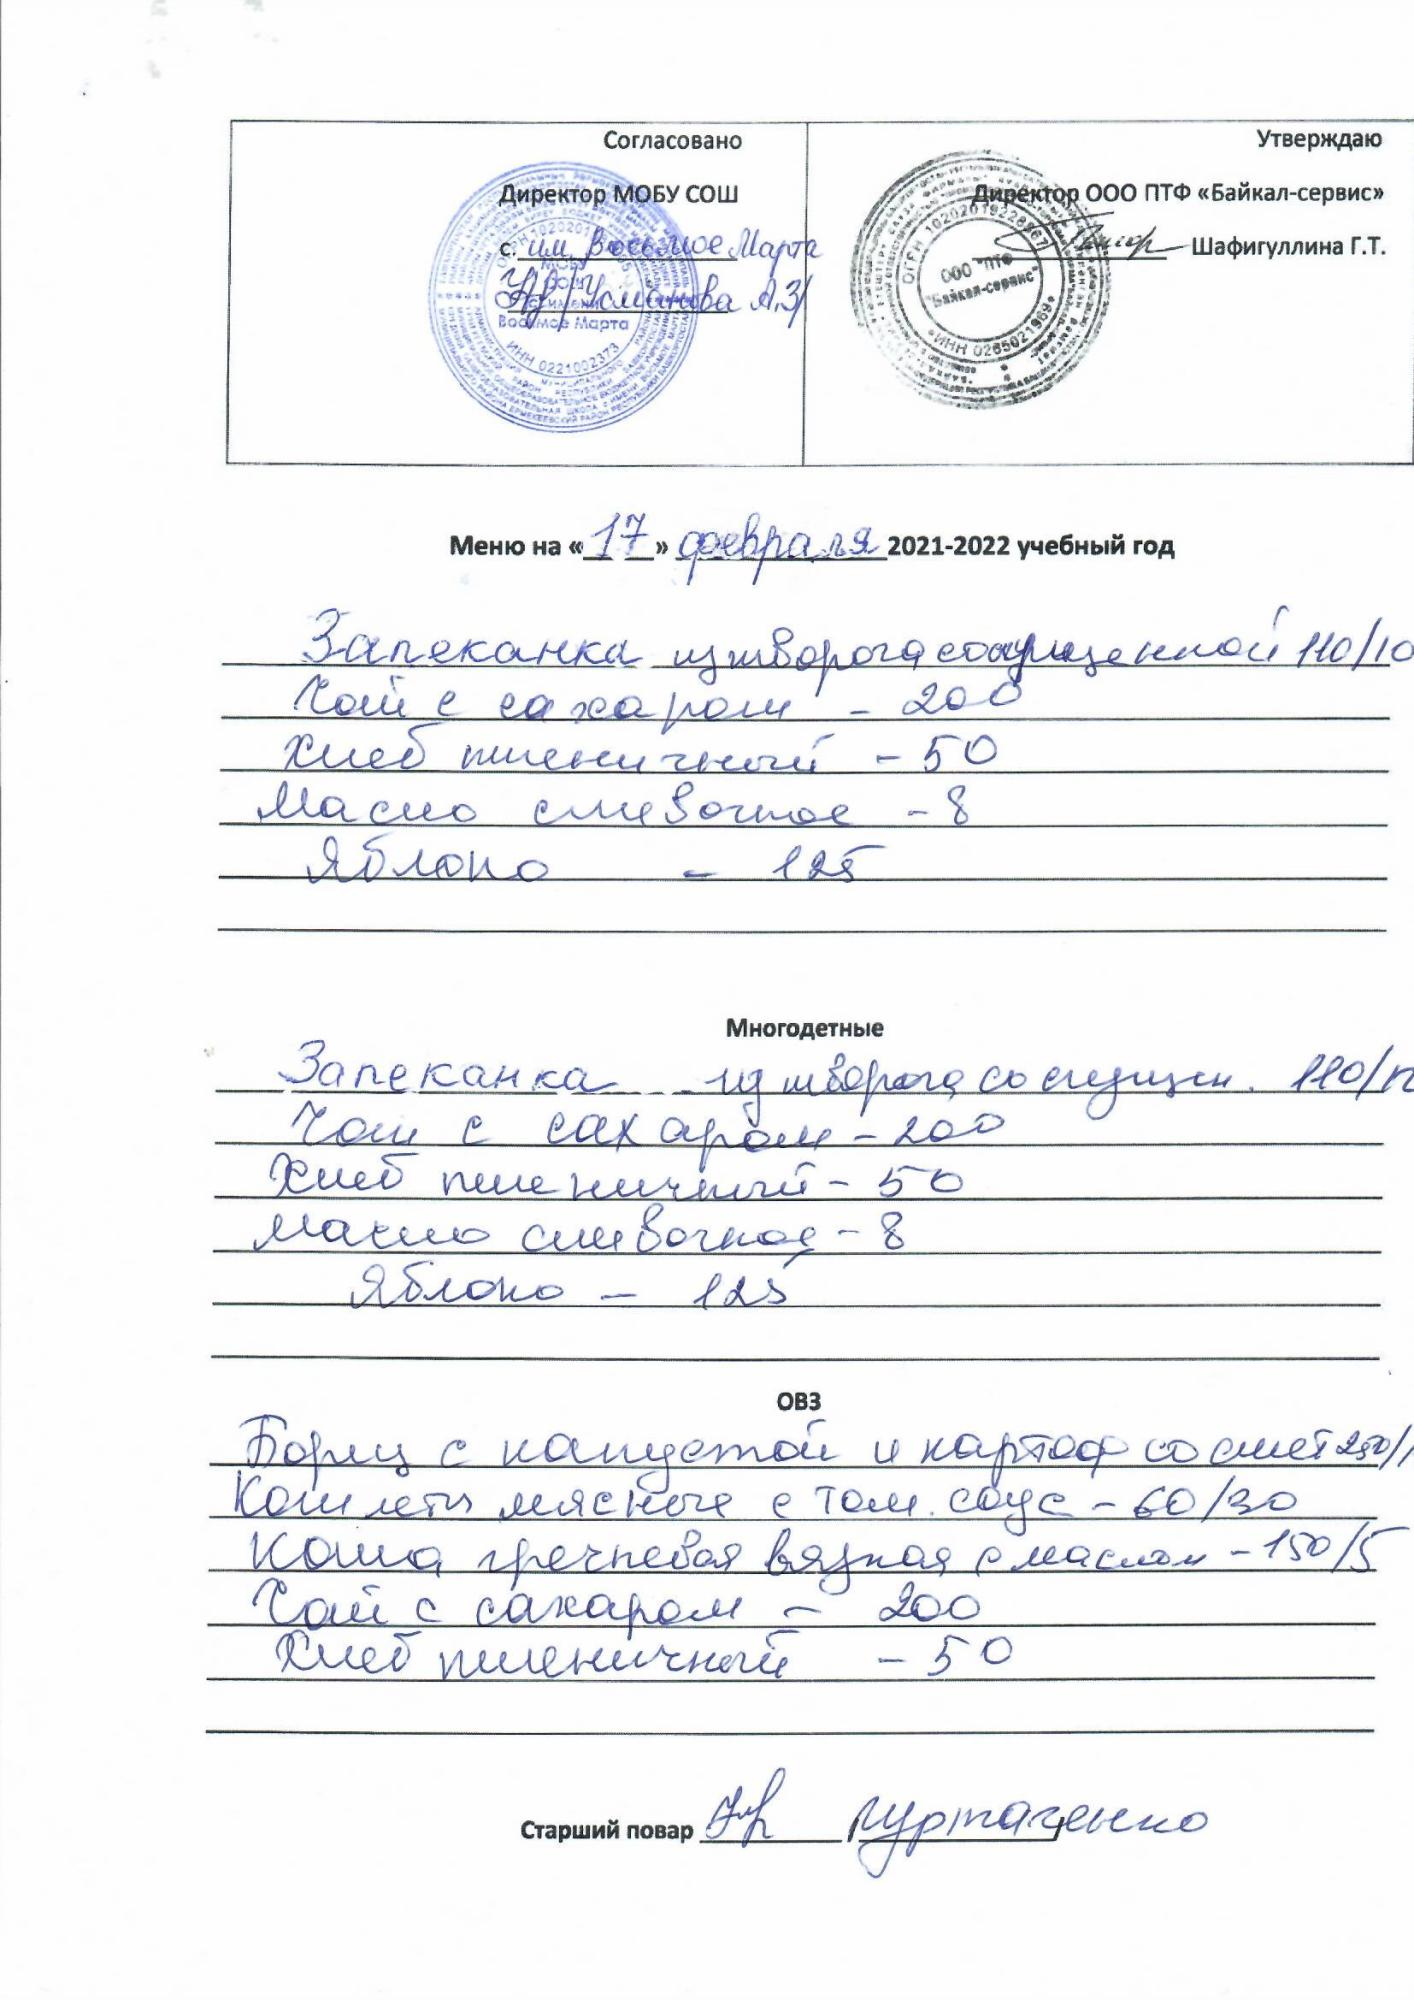 Согласовано
Директор МОБУ СОШ
с. им. Восьмое Марта
/Усманова А.З/
МОБУ
СОШ
с. имени
Восьмое Марта
ИНН 0221002373
Утверждаю
Директор ООО ПТФ «Байкал-сервис»
Шафигуллина Г.Т.
ОГРН 1020201922896
ООО "ПТФ
"Байкал-сервис"
ИНН 0265021969
Меню на «17» февраля 2021-2022 учебный год
Запеканка из творога со сгущенной 110/10
Чай с сахаром - 200
Хлеб пшеничный - 50
Масло сливочное - 8
Яблоко - 125
Многодетные
Запеканка из творога со сгущен. 110/
Чай с сахаром - 200
Хлеб пшеничный - 50
Масло сливочное - 8
Яблоко - 125
ОВЗ
Борщ с капустой и картоф со смет 250/1
Котлеты мясные с том. соус - 60/30
Каша гречневая вязкая с маслом - 150/5
Чай с сахаром - 200
Хлеб пшеничный - 50
Старший повар